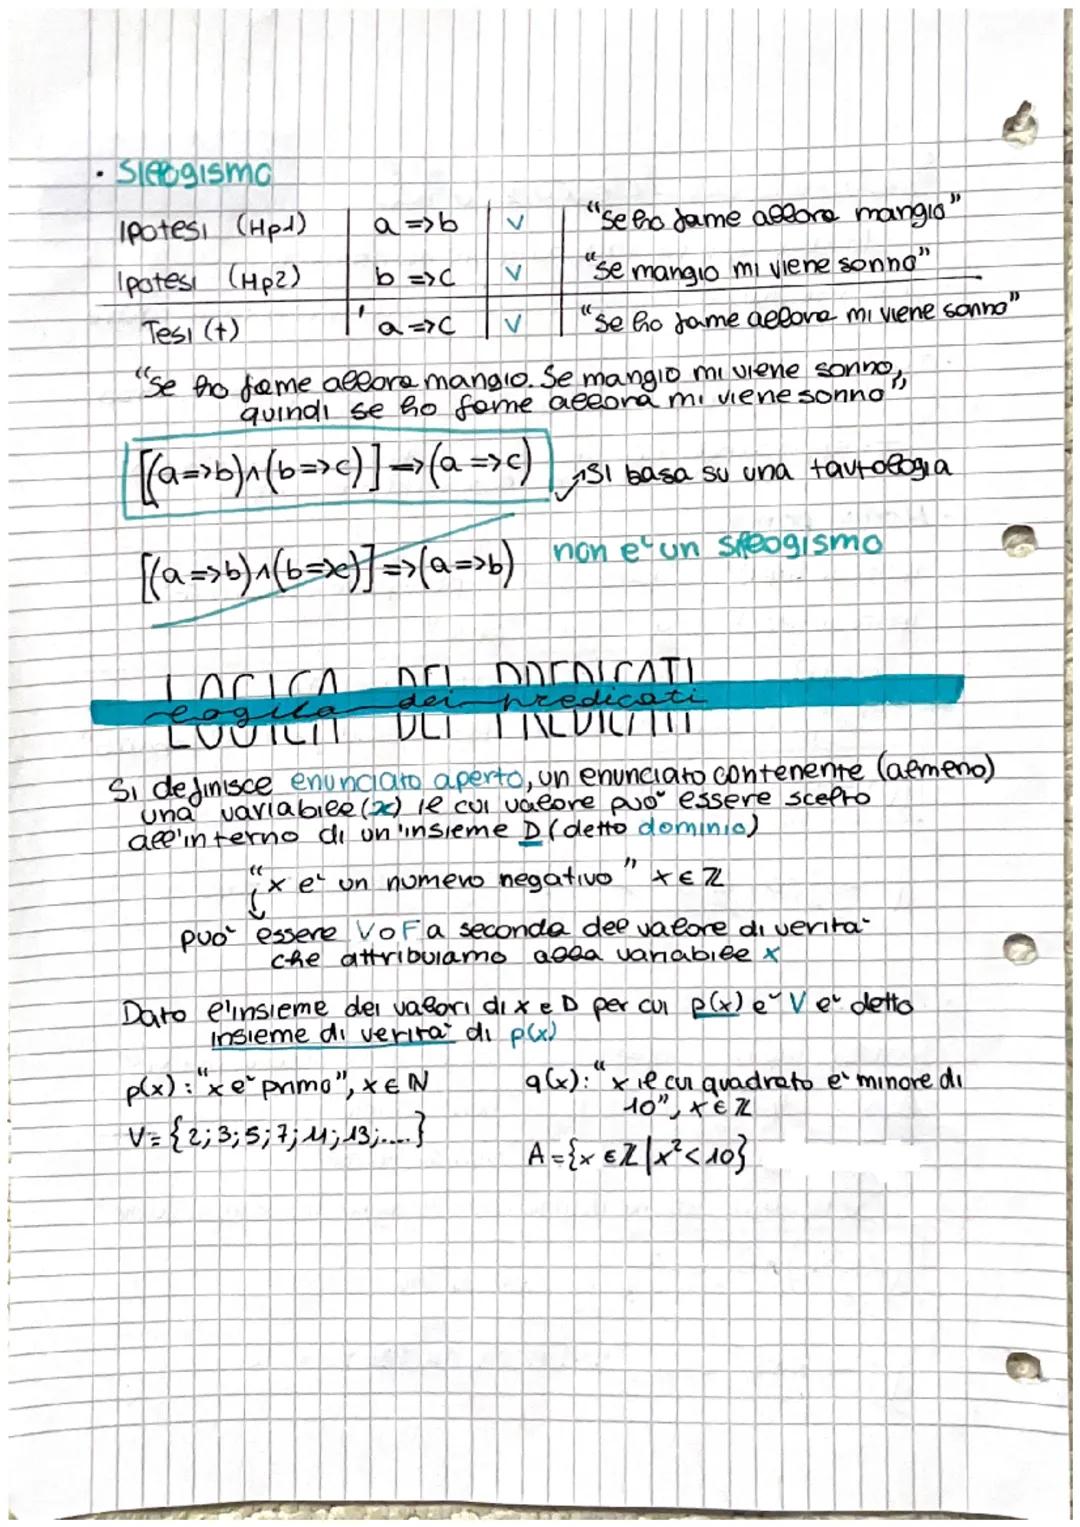 • Sillogismo
Ipotesi (Hp1) a => b V "se ho fame allora mangio"
Ipotesi (Hp2) b => c V "se mangio mi viene sonno"
Tesi (t) a => c V "se ho fame allora mi viene sonno"
"se ho fame allora mangio. Se mangio mi viene sonno,
quindi se ho fame allora mi viene sonno"
[(a=>b)∧(b=>c)]=>(a=>c) si basa su una tautologia
[(a=>b)∧(b=>c)]=>(a=>b) non e' un sillogismo
LOGICA DEI PREDICATI
logica dei predicati
Si definisce enunciato aperto, un enunciato contenente (almeno)
una variabile (x) il cui valore puo' essere scelto
all'interno di un'insieme D (detto dominio)
"x e' un numero negativo" x ∈ ℤ
puo' essere V o F a seconda del valore di verita'
che attribuiamo alla variabile x
Dato l'insieme dei valori di x e D per cui p(x) e' V e' detto
insieme di verita' di p(x)
p(x): "x e' primo", x ∈ ℕ q(x): "x il cui quadrato e' minore di
10", x ∈ ℤ
V = {2; 3; 5; 7; 11; 13; ....}
A = {x ∈ ℤ | x² < 10}